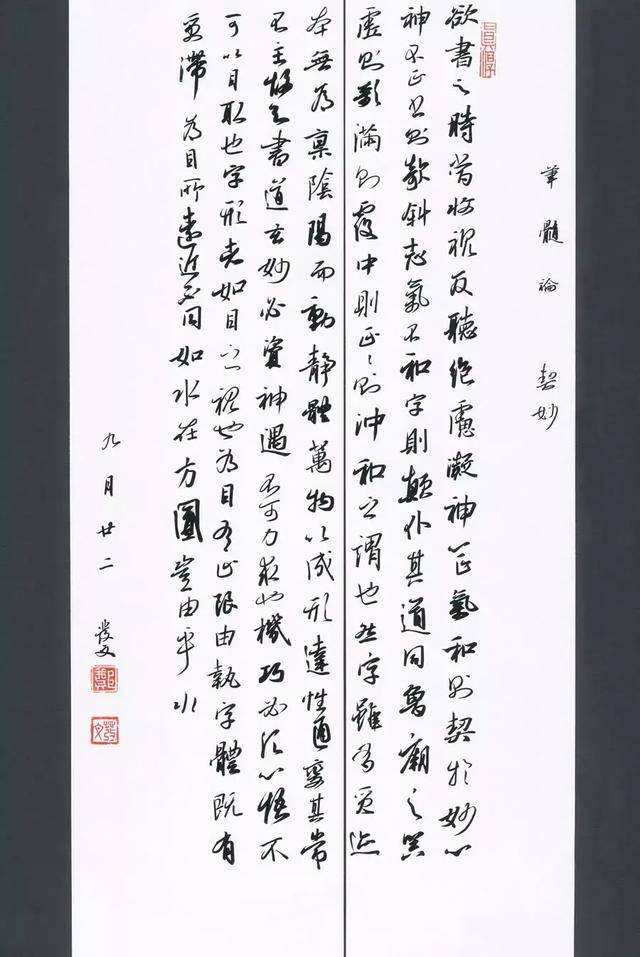 筆髓論 契妙
欲書之時當收視反聽絕慮凝神心正氣和則契於妙心
神不正書則欹斜志氣不和字則顛仆其道同魯廟之器
虛則欹滿則覆中則正〻則沖和之謂也然字雖有質迹
本無為稟陰陽而動靜體萬物以成形達性通變其常
不主故知書道玄妙必資神遇不可力求也機巧必須心悟不
可以目取也字形者如目之視也為目有止限由執字體既有
質滯為目所遠近不同如水在方圓豈由乎水
九月廿二